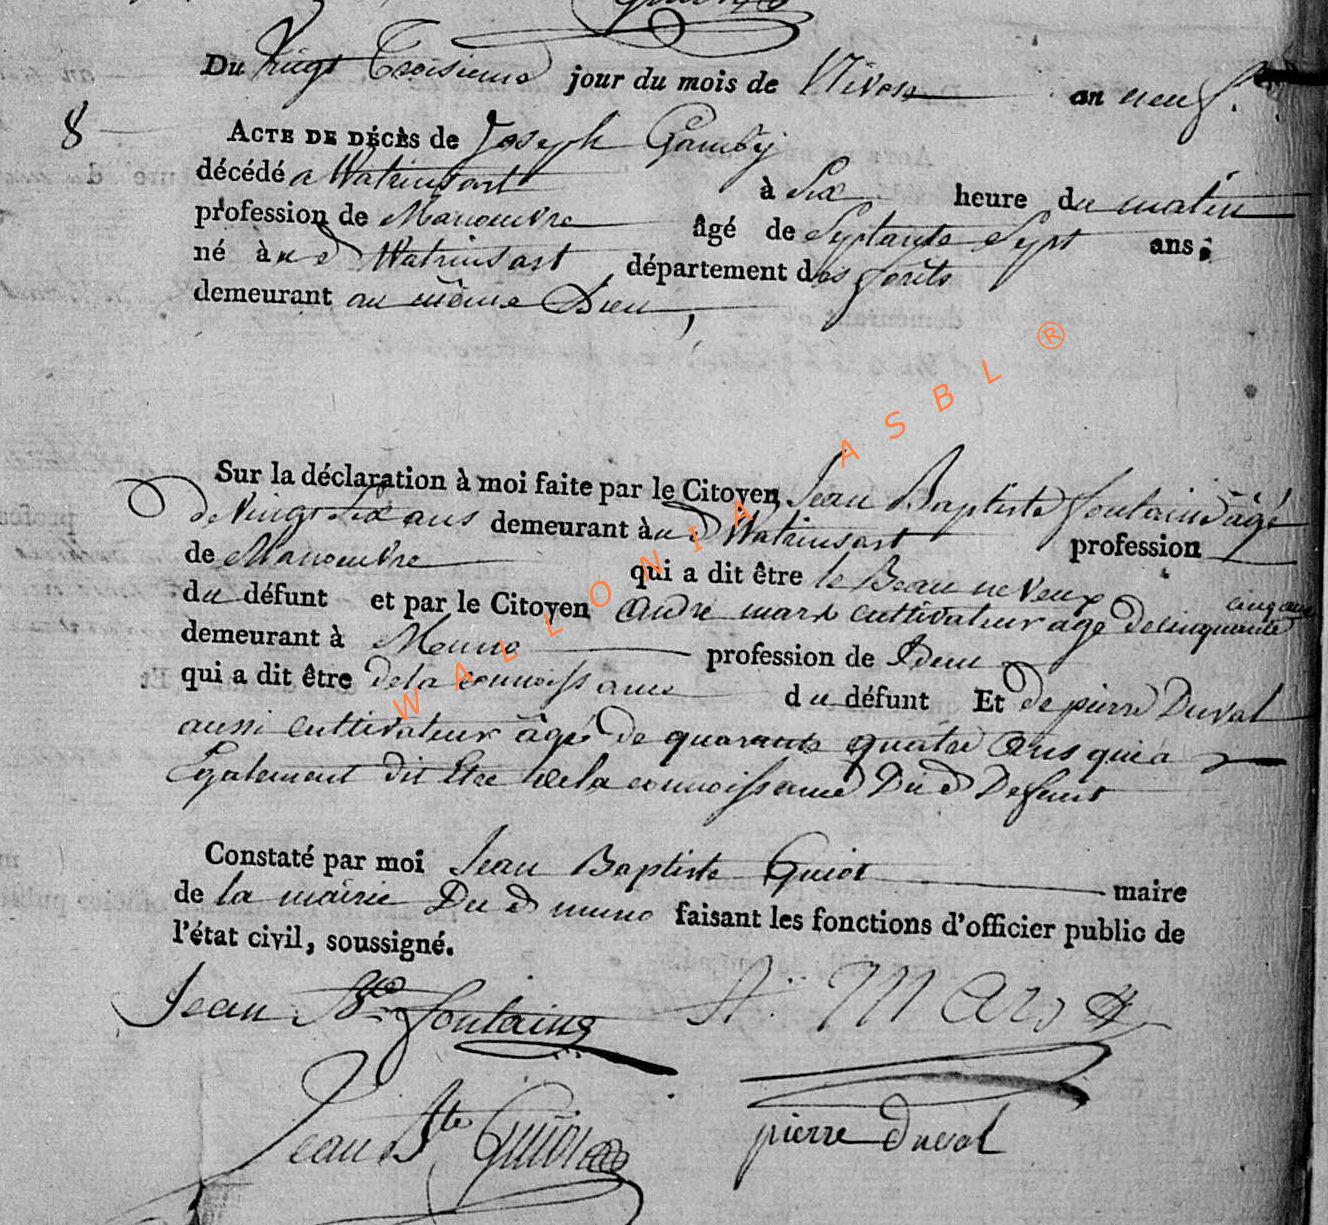 Du vingt Troisieme jour du mois de Nivose an neuf.
8
ACTE DE DÉCÈS de Joseph Gamby
décédé a Watrinsart à Six heure du matin
profession de Manouvre âgé de Septante Sept ans.
né à Watrinsart département des forêts
demeurant au même Lieu,
Sur la déclaration à moi faite par le Citoyen Jean Baptiste fontaine âgé
de vingt Six ans demeurant à Watrinsart profession
de Manouvre qui a dit être le Beau neveux
du défunt et par le Citoyen andré marx cultivateur age de cinquante
cinq ans
demeurant à Muno profession de Idem
qui a dit être de la connoissance du défunt Et de pierre Duval
aussi cultivateur âgé de quarante quatre ans qui a
Egalement dit Etre de la connoissance Du d Defunt
Constaté par moi Jean Baptiste Guiot maire
de la mairie Du d muno faisant les fonctions d'officier public de
l'état civil, soussigné.
Jean Bte fontaine A: Marx
Jean Bte Guiot pierre duval
WALLONIA ASBL ®